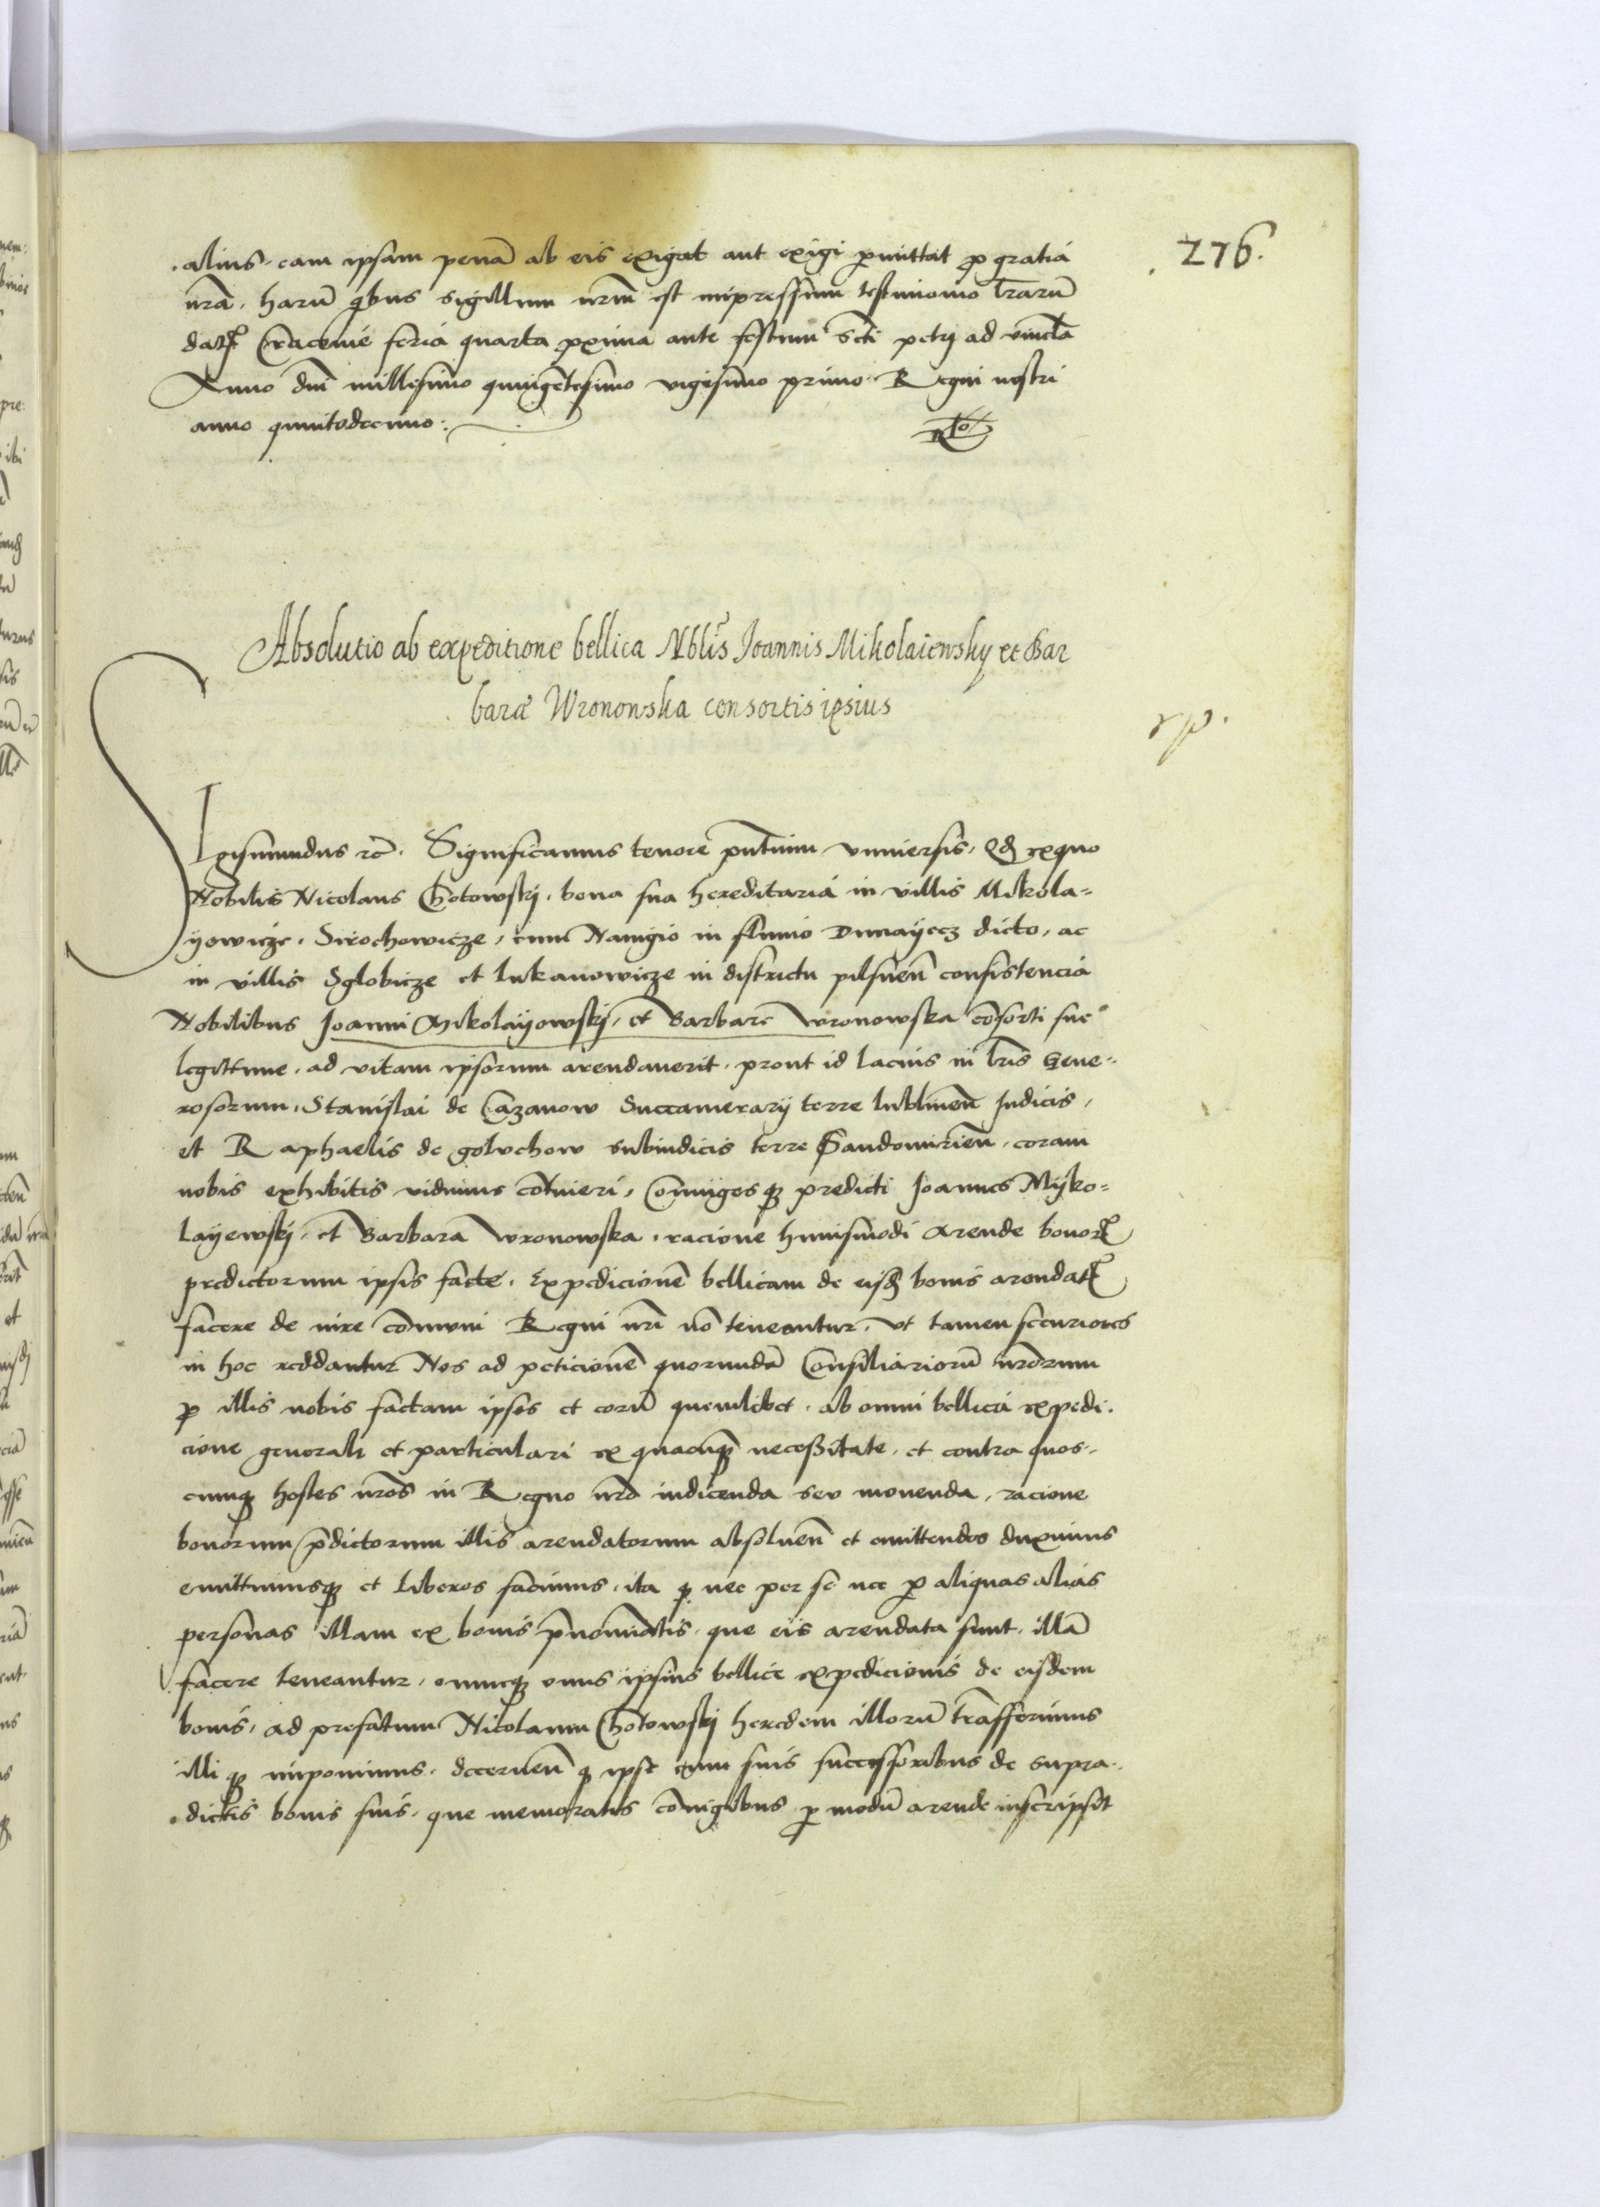 276.
alius. eam ipsam penã ab eis exigat aut exigi ꝑmittat ꝓ gratia
nrã. harũ qbus sigillum nrm̃ est impressum testimonio lrarũ
datꝝ Cracouie feria quarta ꝓxima ante festum scti petrj ad vincla
Anno dnĩ millesimo quingẽtesimo vigesimo primo Regni nostri
anno quintodecimo:
Absolutio ab expeditione bellica Nblis Joannis Mikolaiewsky et Bar
barae Wronowska consortis ipsius
rp.
SIgismundus rc̃. Significamus tenore pñtium vniuersis. Qđ exquo
Nobilis Nicolaus Chotowskj. bona sua hereditaria in villis Mikola-
yowicze. Sirochowicze, cum Nauigio in fluuio Dunayecz dicto, ac
in villis Sglobicze et Lukanowicze in districtu pilsneñ consistencia
Nobilibus Joanni Mikolayowskj, et Barbare Wronowska cõsorti sue
legittime, ad vitam ipsorum arendauerit, prout id lacius in lris Gene-
rosorum, Stanislai de Cazanow Succamerarij terre lublineñ Judicis,
et Raphaelis de goluchow subiudicis terre Sandomirieñ, coram
nobis exhibitis vidimus cõtineri, Coniuges qꝫ predicti Joannes Myko-
layewskj, et Barbara Wronowska, racione huiusmodi Arende bonoꝝ
predictorum ipsis facte, Expedicionẽ bellicam de eisđ bonis arendatꝝ
facere de iure cõmuni Regni nrĩ nõ teneantur, vt tamen securiores
in hoc reddantur Nos ad peticionẽ quorundã Consiliariorũ nrõrum
ꝓ illis nobis factam ipsos et eorũ quemlibet, ab omni bellica expedi-
cione generali et particulari ex quacunqꝫ necessitate, et contra quos-
cunqꝫ hostes nrõs in Regno nrõ indicenda seu mouenda, racione
bonorum p̃dictorum illis arendatorum absolueñ et emittendos duximus
emittimusqꝫ et liberos facimus, ita qꝫ nec per se nec ꝑ aliquas alias
personas illam ex bonis p̃nominatis, que eis arendata sunt, illã
facere teneantur, omneqꝫ onus ipsius bellice expedicionis de eisdem
bonis, ad prefatum Nicolaum Chotowskj heredem illorũ trãsferimus
illi qꝫ imponimus, decerneñ qꝫ ipse cum suis successoribus de supra-
dictis bonis suis, que memoratis cõiugibus ꝑ modũ arende inscripsit